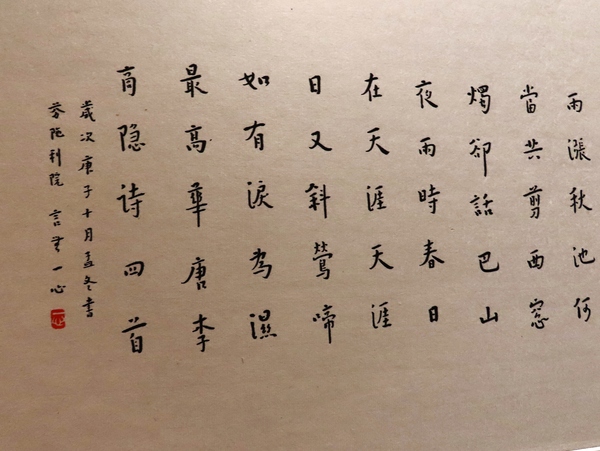 雨漲秋池何
當共剪西窓
燭卻話巴山
夜雨時春日
在天涯天涯
日又斜鶯啼
如有淚為濕
最高華唐李
商隐诗四首
歲次庚子十月孟冬書
芬陀利院 言 一心
一心